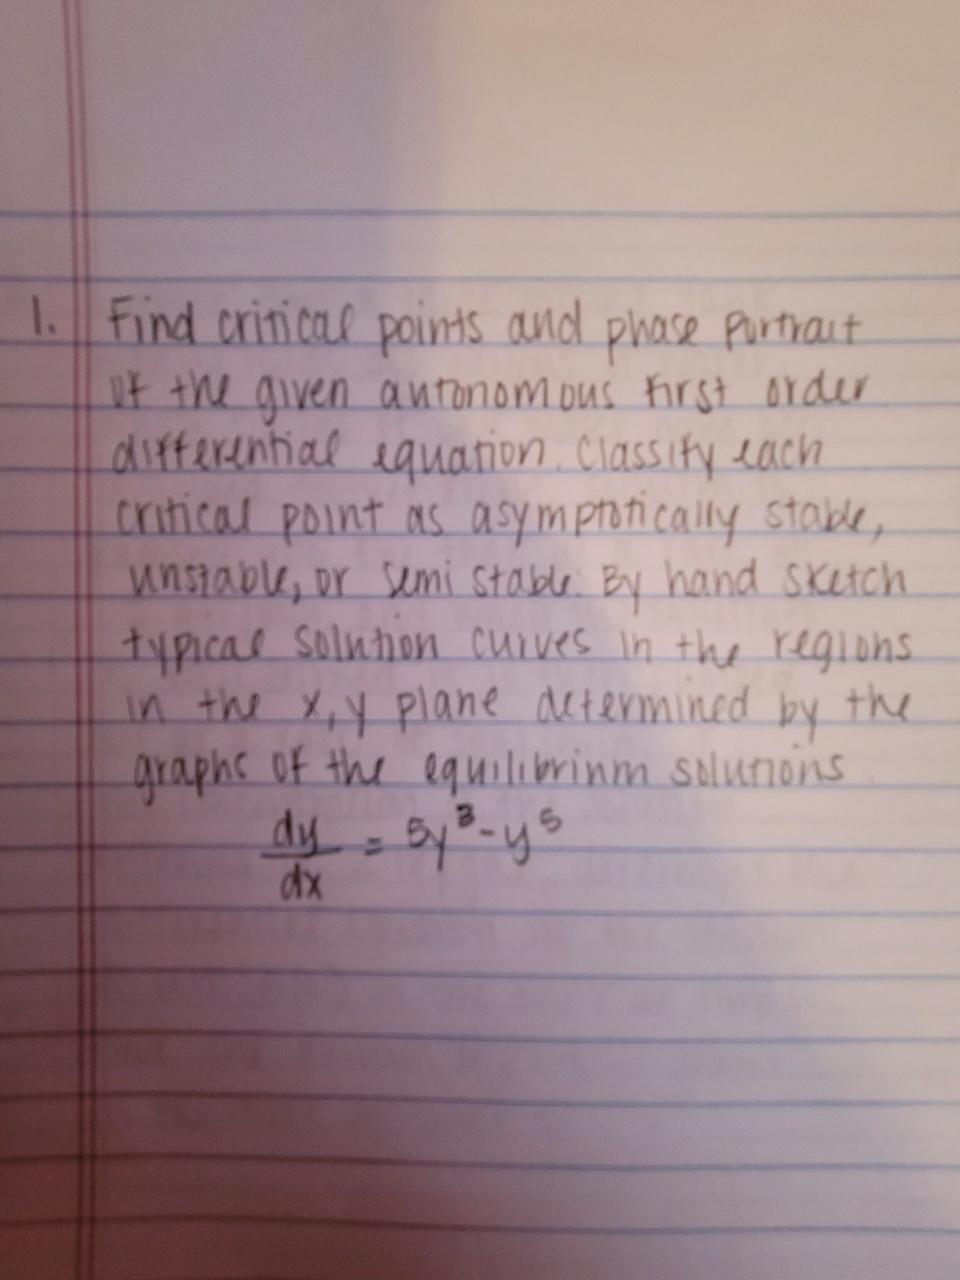 1. Find critical points and phase portrait
of the given autonomous first order
differential equation. Classify each
critical point as asymptotically stable,
unstable, or semi stable. By hand sketch
typical solution curves in the regions
in the x, y plane determined by the
graphs of the equilibrium solutions.
dy/dx = 5y³ - y⁵